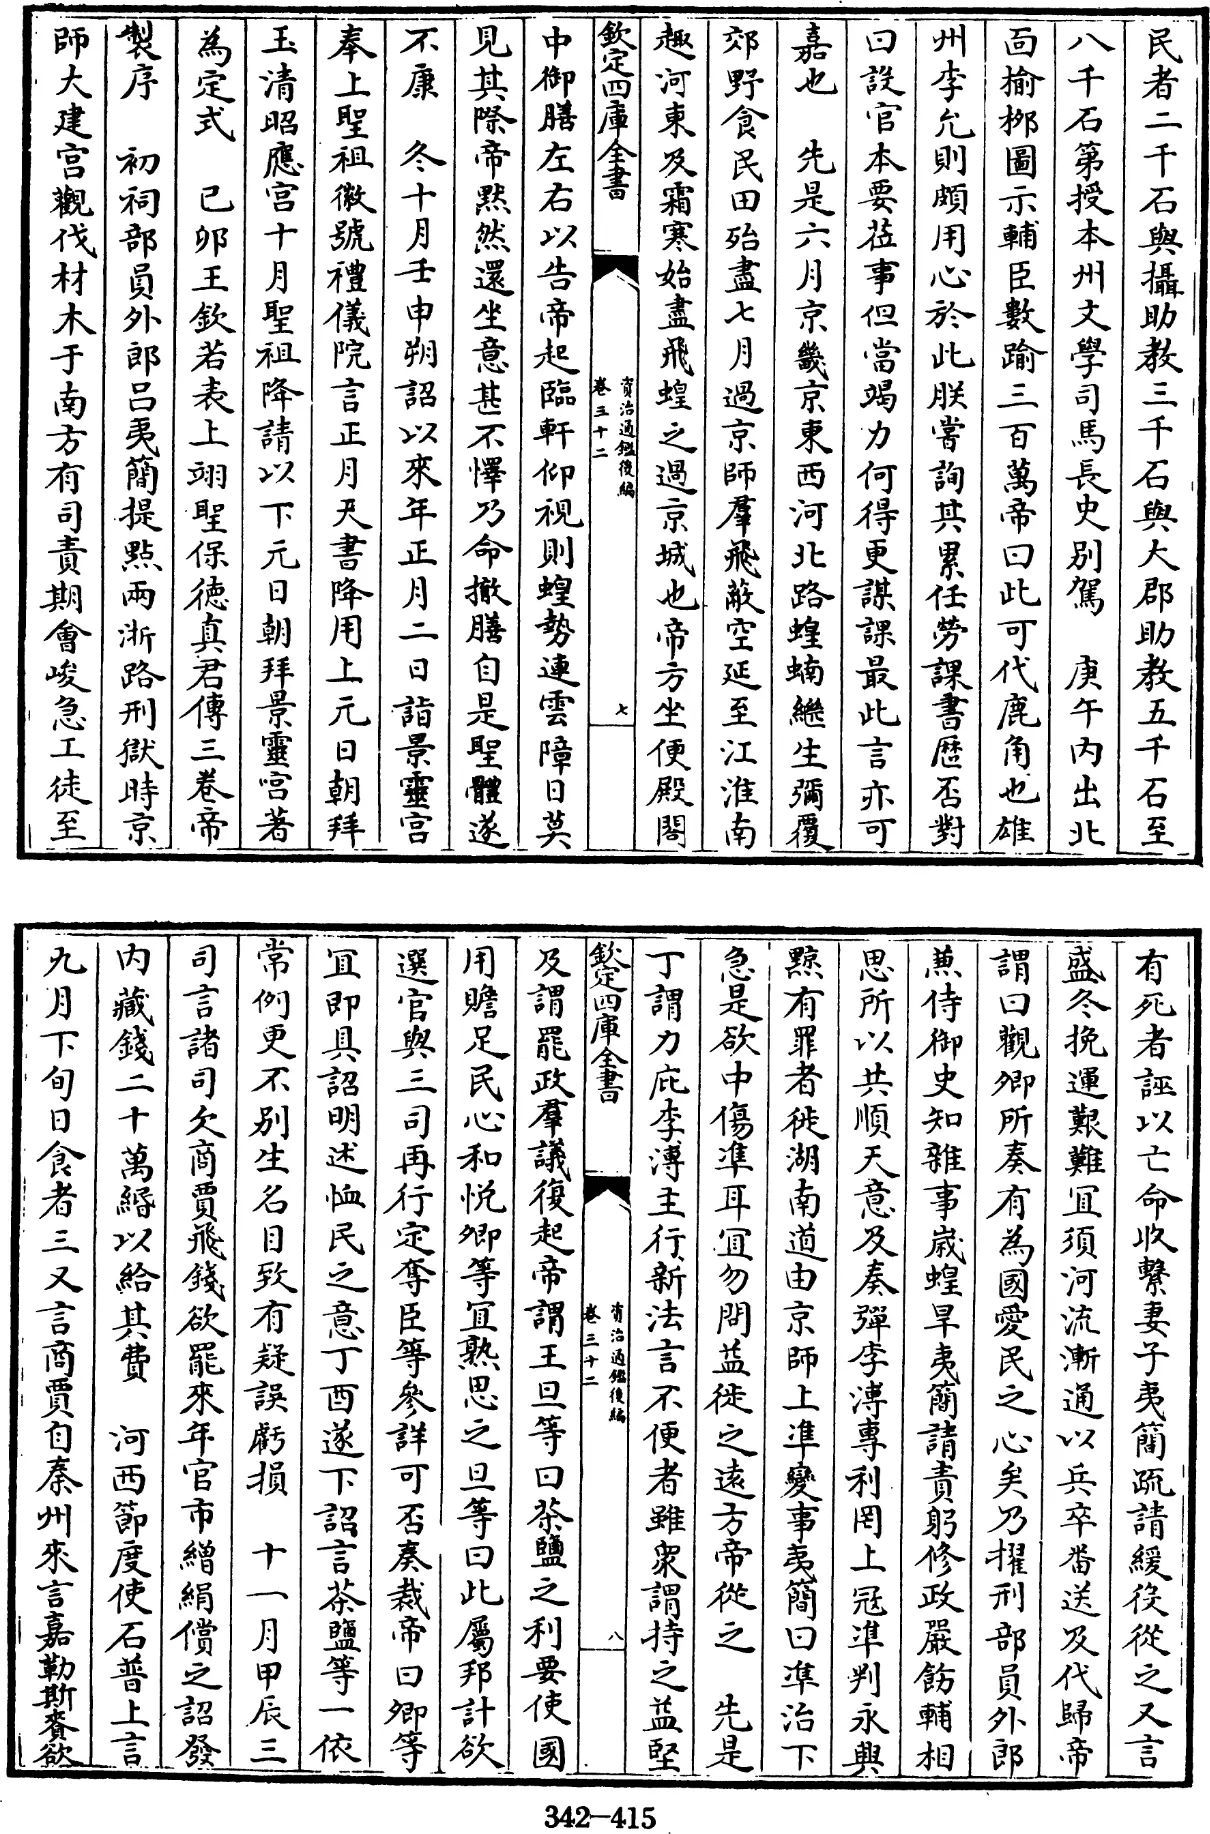 民者二千石與攝助教三千石與大郡助教五千石至
八千石第授本州文學司馬長史別駕　庚午内出北
面榆栁圖示輔臣數踰三百萬帝曰此可代鹿角也雄
州李允則頗用心於此朕嘗詢其累任勞課書歴否對
曰設官本要莅事但當竭力何得更謀課最此言亦可
嘉也　先是六月京畿京東西河北路蝗蝻繼生彌覆
郊野食民田殆盡七月過京師羣飛蔽空延至江淮南
趣河東及霜寒始盡飛蝗之過京城也帝方坐便殿閣
欽定四庫全書
資治通鑑後編
卷三十二
七
中御膳左右以告帝起臨軒仰視則蝗勢連雲障日莫
見其際帝黙然還坐意甚不懌乃命撤膳自是聖體遂
不康　冬十月壬申朔詔以來年正月二日詣景靈宫
奉上聖祖徽號禮儀院言正月天書降用上元日朝拜
玉清昭應宫十月聖祖降請以下元日朝拜景靈宫著
為定式　己卯王欽若表上翊聖保徳真君傳三卷帝
製序　初祠部員外郎呂夷簡提點兩浙路刑獄時京
師大建宫觀伐材木于南方有司責期會峻急工徒至
有死者誣以亡命收繫妻子夷簡疏請緩役從之又言
盛冬挽運艱難宜須河流漸通以兵卒畨送及代歸帝
謂曰觀卿所奏有為國愛民之心矣乃擢刑部員外郎
兼侍御史知雜事歲蝗旱夷簡請責躬修政嚴飭輔相
思所以共順天意及奏彈李溥專利罔上冦準判永興
黥有罪者徙湖南道由京師上準變事夷簡曰準治下
急是欲中傷準耳宜勿問益徙之逺方帝從之　先是
丁謂力庇李溥主行新法言不便者雖衆謂持之益堅
欽定四庫全書
資治通鑑後編
卷三十二
八
及謂罷政羣議復起帝謂王旦等曰茶鹽之利要使國
用贍足民心和悦卿等宜熟思之旦等曰此屬邦計欲
選官與三司再行定奪臣等參詳可否奏裁帝曰卿等
宜即具詔明述恤民之意丁酉遂下詔言茶鹽等一依
常例更不别生名目致有疑誤虧損　十一月甲辰三
司言諸司欠商賈飛錢欲罷來年官市繒絹償之詔發
内藏錢二十萬緡以給其費　河西節度使石普上言
九月下旬日食者三又言商賈自秦州來言嘉勒斯賚欲
342-415